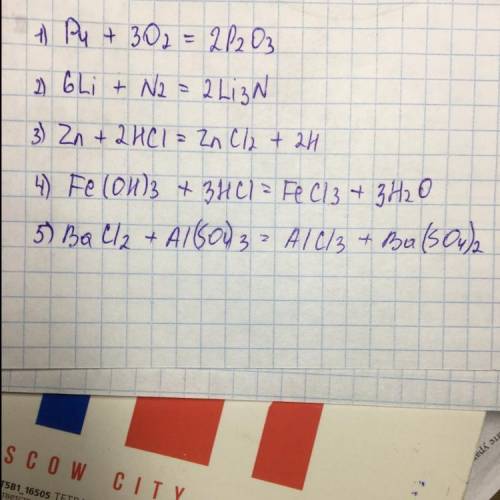 1) P4 + 3O2 = 2P2O3
2) 6Li + N2 = 2Li3N
3) Zn + 2HCl = ZnCl2 + 2H
4) Fe(OH)3 + 3HCl = FeCl3 + 3H2O
5) BaCl2 + Al(SO4)3 = AlCl3 + Ba(SO4)2
SCOW CITY